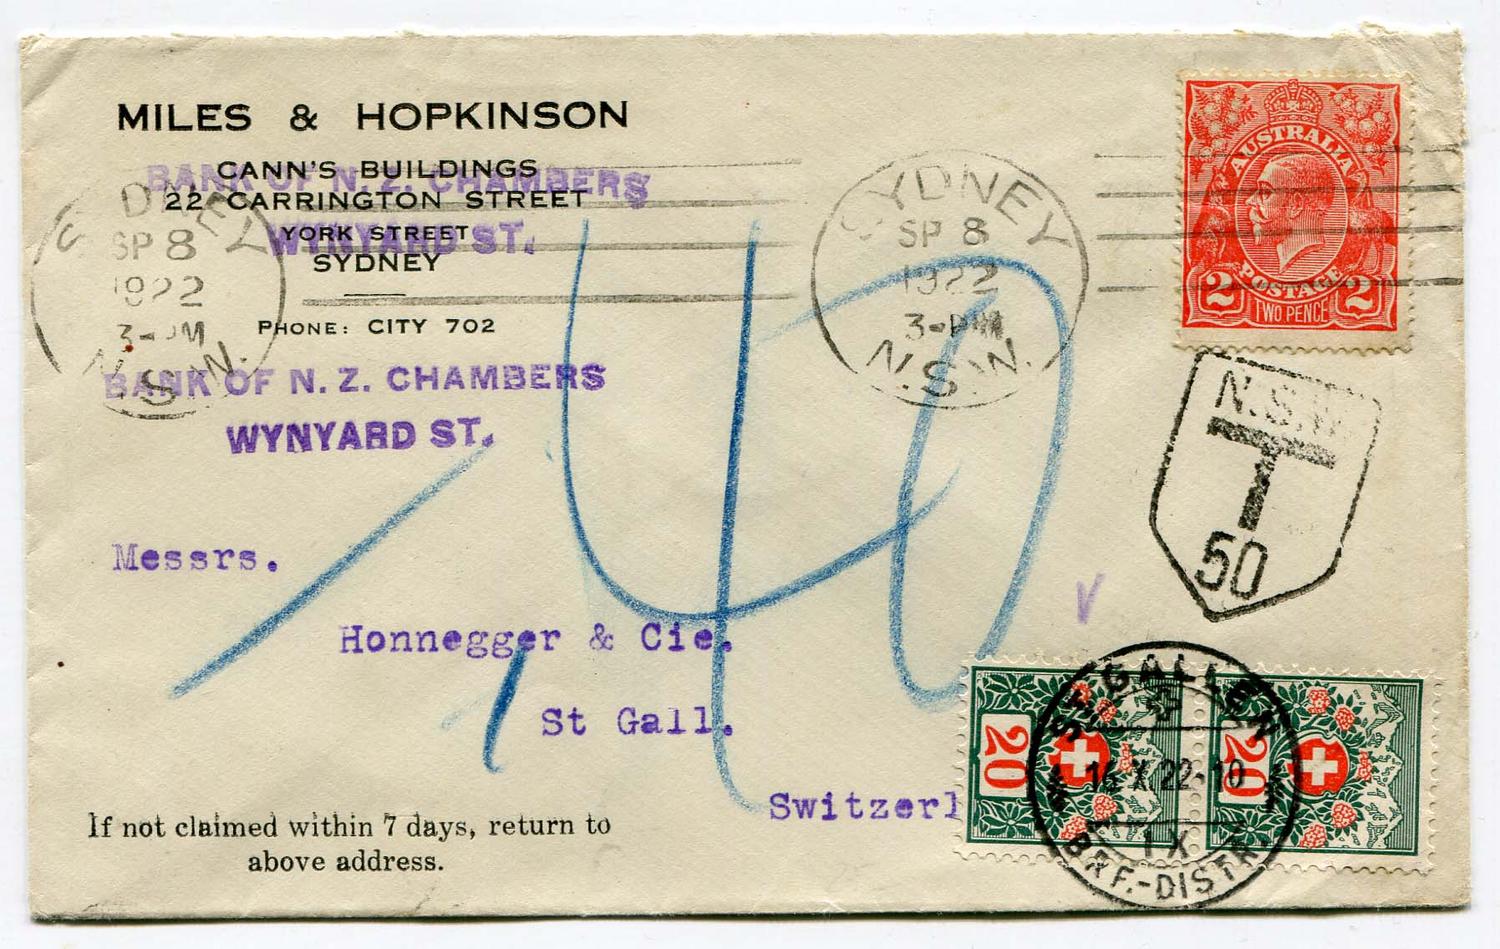 MILES & HOPKINSON
CANN'S BUILDINGS
BANK OF N. Z. CHAMBERS
22 CARRINGTON STREET
YORK STREET
WYNYARD ST.
SYDNEY
PHONE: CITY 702
BANK OF N. Z. CHAMBERS
WYNYARD ST.
SYDNEY
SP 8
1922
3-PM
N.S.W.
SYDNEY
SP 8
1922
3-PM
N.S.W.
AUSTRALIA
POSTAGE
2 2
TWO PENCE
N.S.W.
T
50
40
Messrs.
Honnegger & Cie.
St Gall.
Switzerl
If not claimed within 7 days, return to
above address.
20
20
ST. GALLEN
16.X.22-10
IX
BRF.-DISTR.